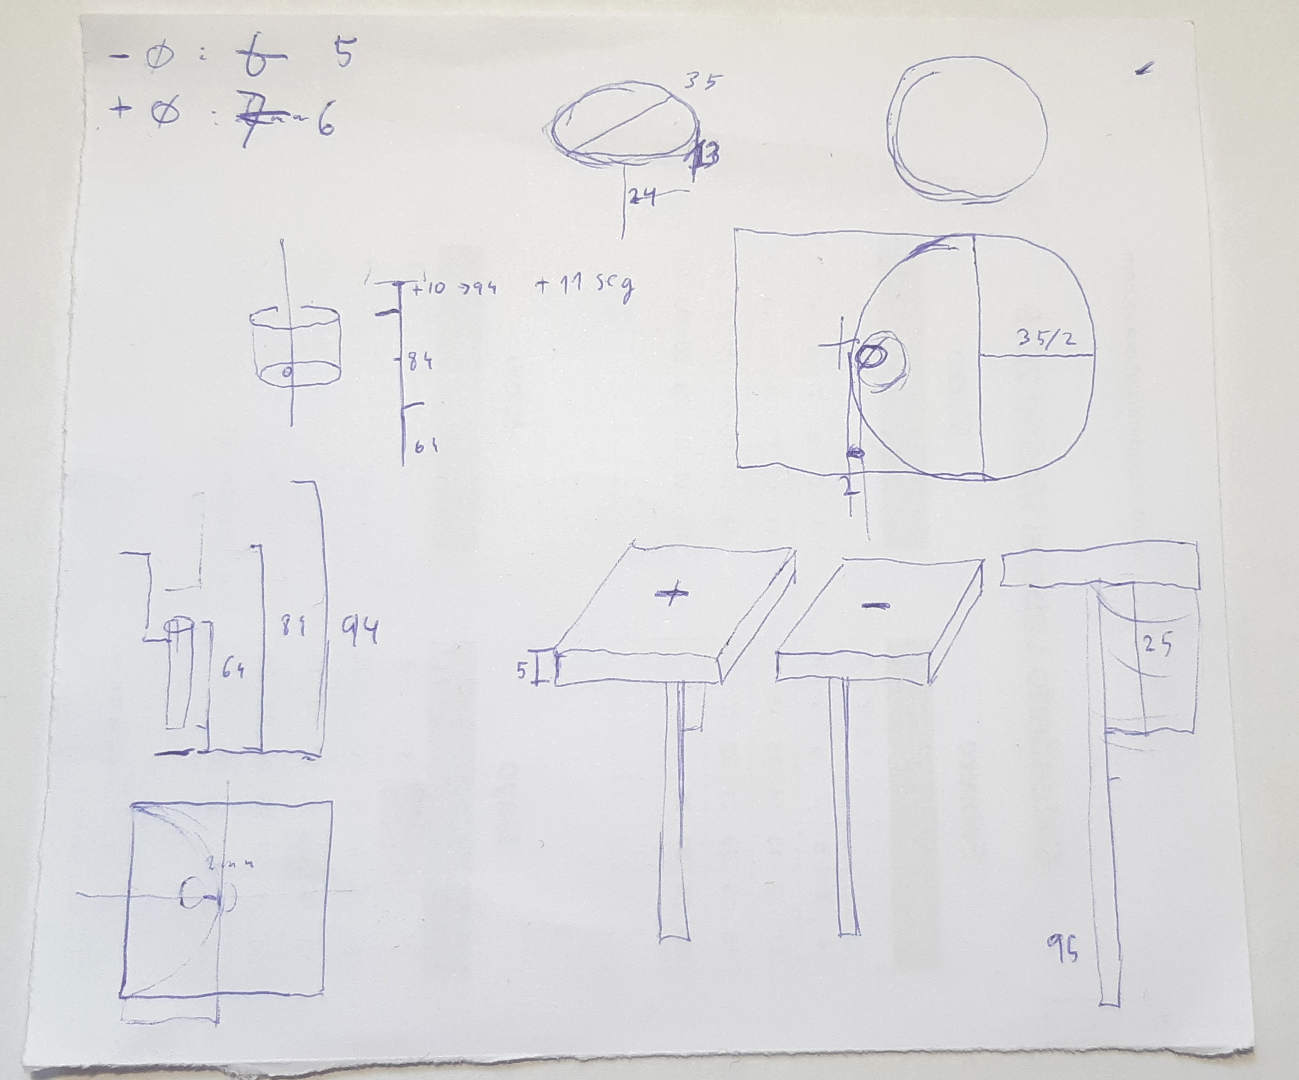 - Ø : 6 5
+ Ø : 7mm 6
35
13
24
+10 →94 +11 scg
84
64
35/2
Ø
2
64
84
94
+
-
5
25
2mm
95